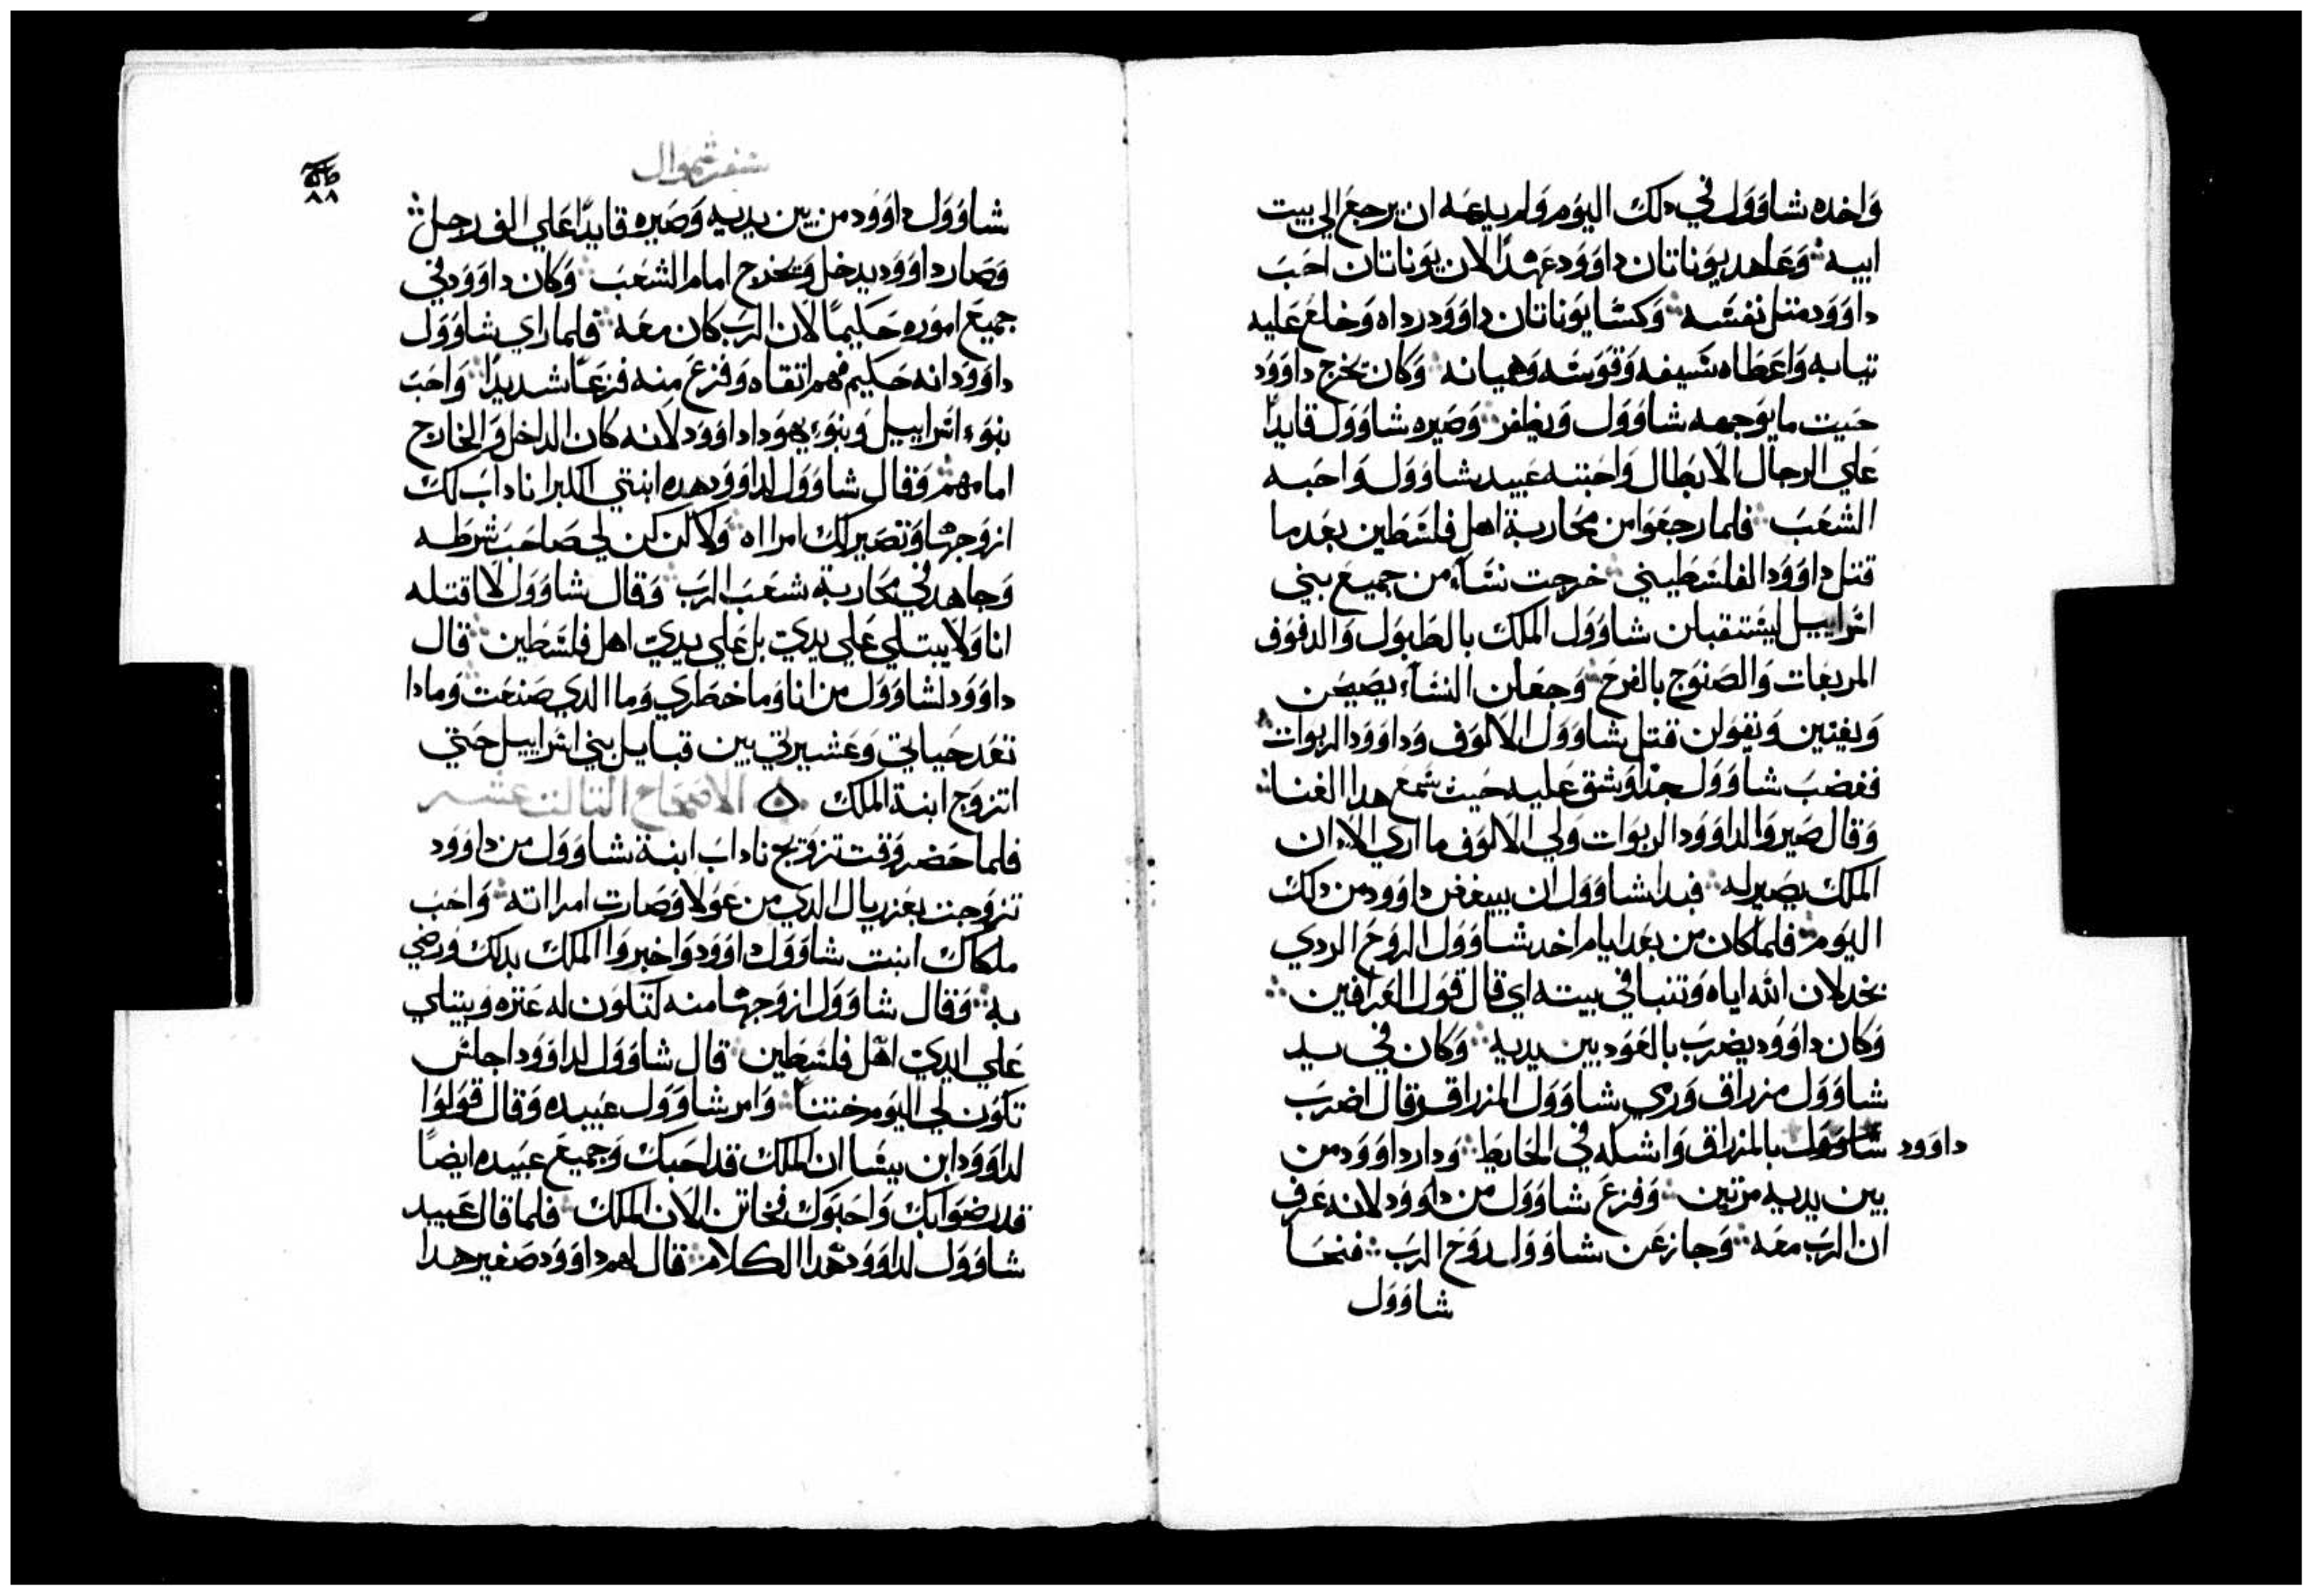 واخده شاوول في دلك اليوم ولم يدعه ان يرجع الي بيت
ابيه وعاهد يوناتان داوود عهدًا لان يوناتان احب
داوود متل نفسه وكسا يوناتان داوود رداه وخلع عليه
تيابه واعطاه سيفه وقوسه وهميانه وكان يخرج داوود
حيت ما يوجهه شاوول ويظفر وصيره شاوول قايدًا
علي الرجال الابطال واحبته عبيد شاوول واحبه
الشعب فلما رجعوا من محاربة اهل فلسطين بعد ما
قتل داوود الفلسطيني خرجت نساء من جميع بني
اسراييل ليستقبلن شاوول الملك بالطبول والدفوف
المربعات والصنوج بالفرح وجعلن النساء يصيحن
ويغنين ويقولن قتل شاوول الالوف وداوود الربوات
فغضب شاوول جدًا وشق عليه حيت سمع هدا الغنا
وقال صيروا لداوود الربوات ولي الالوف ما اري الا ان
الملك يصير له فبدا شاوول ان يبغض داوود من دلك
اليوم فلما كان من بعد ايام اخد شاوول الروح الردي
بخدلان الله اياه وتنبا في بيته اي قال قول العرافين
وكان داوود يضرب بالعود بين يديه وكان في يد
شاوول مزراق ورمي شاوول المزراق وقال اضرب
داوود شاوول بالمزراق واشكله في الحايط ودار داوود من
بين يديه مرتين وفزع شاوول من داوود لانه عرف
ان الرب معه وجاز عن شاوول روح الرب فنحا
شاوول
سفر شموال
٨٨
شاوول داوود من بين يديه وصيره قايدًا علي الف رجل
وصار داوود يدخل ويخرج امام الشعب وكان داوود في
جميع اموره حكيمًا لان الرب كان معه فلما راي شاوول
داوود انه حكيم فهم اتقاه وفزع منه فزعًا شديدًا واحب
بنوء اسراييل وبنوء يهودا داوود لانه كان الداخل والخارج
امامهم وقال شاوول لداوود هده ابنتي الكبرا ناداب لك
ازوجها وتصير لك امراه ولاكن كن لي صاحب شرطه
وجاهد في محاربة شعب الرب وقال شاوول لا اقتله
انا ولا يبتلي علي يدي بل علي يدي اهل فلسطين قال
داوود لشاوول من انا وما خطري وما الدي صنعت وما دا
تعد حياتي وعشيرتي بين قبايل بني اسراييل حتي
اتزوج ابنة الملك ه الاصحاح التالت عشر
فلما حضر وقت تزويج ناداب ابنة شاوول من داوود
تزوجت بعزريال الدي من عولا وصارت امراته واحب
ملكاك ابنت شاوول داوود واخبروا الملك بدلك ورضي
به وقال شاوول ازوجها منه لتكون له عتره ويبتلي
علي ايدي اهل فلسطين قال شاوول لداوود اجلس
تكون لي اليوم ختنًا وامر شاوول عبيده وقال قولوا
لداوود ابن ييسا ان الملك قد احبك وجميع عبيده ايضًا
قد رضوا بك واحبوك فخاتن الان الملك فلما قال عبيد
شاوول لداوود هدا الكلام قال لهم داوود صغير هدا